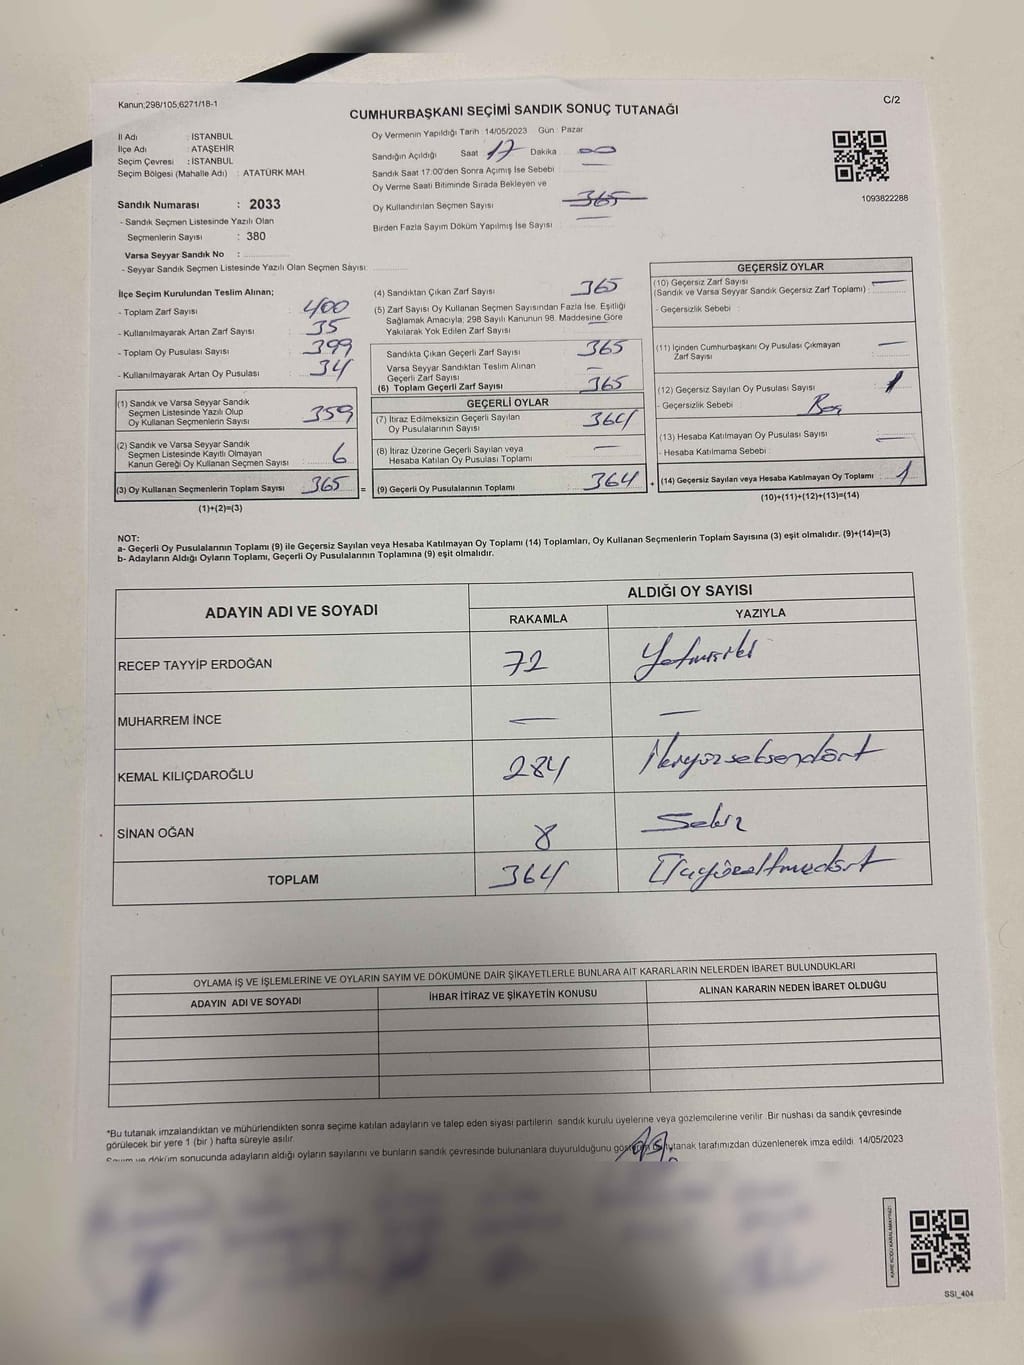 Kanun;298/105;6271/18-1
C/2
CUMHURBAŞKANI SEÇİMİ SANDIK SONUÇ TUTANAĞI
İl Adı : İSTANBUL
İlçe Adı : ATAŞEHİR
Seçim Çevresi : İSTANBUL
Seçim Bölgesi (Mahalle Adı) : ATATÜRK MAH
Sandık Numarası : 2033
- Sandık Seçmen Listesinde Yazılı Olan
Seçmenlerin Sayısı : 380
Varsa Seyyar Sandık No :
- Seyyar Sandık Seçmen Listesinde Yazılı Olan Seçmen Sayısı:
Oy Vermenin Yapıldığı Tarih 14/05/2023 Gün Pazar
Sandığın Açıldığı Saat 17 Dakika 00
Sandık Saat 17:00'den Sonra Açımış İse Sebebi
Oy Verme Saati Bitiminde Sırada Bekleyen ve
Oy Kullandırılan Seçmen Sayısı 365
Birden Fazla Sayım Döküm Yapılmış İse Sayısı
1093822288
İlçe Seçim Kurulundan Teslim Alınan;
- Toplam Zarf Sayısı : 400
- Kullanılmayarak Artan Zarf Sayısı : 35
- Toplam Oy Pusulası Sayısı : 399
- Kullanılmayarak Artan Oy Pusulası : 34
(1) Sandık ve Varsa Seyyar Sandık
Seçmen Listesinde Yazılı Olup
Oy Kullanan Seçmenlerin Sayısı 359
(2) Sandık ve Varsa Seyyar Sandık
Seçmen Listesinde Kayıtlı Olmayan
Kanun Gereği Oy Kullanan Seçmen Sayısı 6
(3) Oy Kullanan Seçmenlerin Toplam Sayısı 365 =
(1)+(2)=(3)
(4) Sandıktan Çıkan Zarf Sayısı 365
(5) Zarf Sayısı Oy Kullanan Seçmen Sayısından Fazla İse, Eşitliği
Sağlamak Amacıyla, 298 Sayılı Kanunun 98. Maddesine Göre
Yakılarak Yok Edilen Zarf Sayısı
Sandıkta Çıkan Geçerli Zarf Sayısı 365
Varsa Seyyar Sandıktan Teslim Alınan
Geçerli Zarf Sayısı –
(6) Toplam Geçerli Zarf Sayısı 365
GEÇERLİ OYLAR
(7) İtiraz Edilmeksizin Geçerli Sayılan
Oy Pusulalarının Sayısı 364
(8) İtiraz Üzerine Geçerli Sayılan veya
Hesaba Katılan Oy Pusulası Toplamı –
(9) Geçerli Oy Pusulalarının Toplamı 364
GEÇERSİZ OYLAR
(10) Geçersiz Zarf Sayısı –
(Sandık ve Varsa Seyyar Sandık Geçersiz Zarf Toplamı) :
- Geçersizlik Sebebi :
(11) İçinden Cumhurbaşkanı Oy Pusulası Çıkmayan
Zarf Sayısı : –
(12) Geçersiz Sayılan Oy Pusulası Sayısı : 1
- Geçersizlik Sebebi : Boş
(13) Hesaba Katılmayan Oy Pusulası Sayısı : –
- Hesaba Katılmama Sebebi :
(14) Geçersiz Sayılan veya Hesaba Katılmayan Oy Toplamı : 1
(10)+(11)+(12)+(13)=(14)
NOT:
a- Geçerli Oy Pusulalarının Toplamı (9) ile Geçersiz Sayılan veya Hesaba Katılmayan Oy Toplamı (14) Toplamları, Oy Kullanan Seçmenlerin Toplam Sayısına (3) eşit olmalıdır. (9)+(14)=(3)
b- Adayların Aldığı Oyların Toplamı, Geçerli Oy Pusulalarının Toplamına (9) eşit olmalıdır.
ADAYIN ADI VE SOYADI
ALDIĞI OY SAYISI
RAKAMLA YAZIYLA
RECEP TAYYİP ERDOĞAN 72 Yetmişiki
MUHARREM İNCE – –
KEMAL KILIÇDAROĞLU 284 İkiyüzseksendört
SİNAN OĞAN 8 Sekiz
TOPLAM 364 Üçyüzaltmışdört
OYLAMA İŞ VE İŞLEMLERİNE VE OYLARIN SAYIM VE DÖKÜMÜNE DAİR ŞİKAYETLERLE BUNLARA AİT KARARLARIN NELERDEN İBARET BULUNDUKLARI
ADAYIN ADI VE SOYADI İHBAR İTİRAZ VE ŞİKAYETİN KONUSU ALINAN KARARIN NEDEN İBARET OLDUĞU
*Bu tutanak imzalandıktan ve mühürlendikten sonra seçime katılan adayların ve talep eden siyasi partilerin sandık kurulu üyelerine veya gözlemcilerine verilir. Bir nüshası da sandık çevresinde
görülecek bir yere 1 (bir ) hafta süreyle asılır.
Sayım ve döküm sonucunda adayların aldığı oyların sayılarını ve bunların sandık çevresinde bulunanlara duyurulduğunu tutanak tarafımızdan düzenlenerek imza edildi. 14/05/2023
KARE KODU KARALAMAYINIZ!
SSI_404